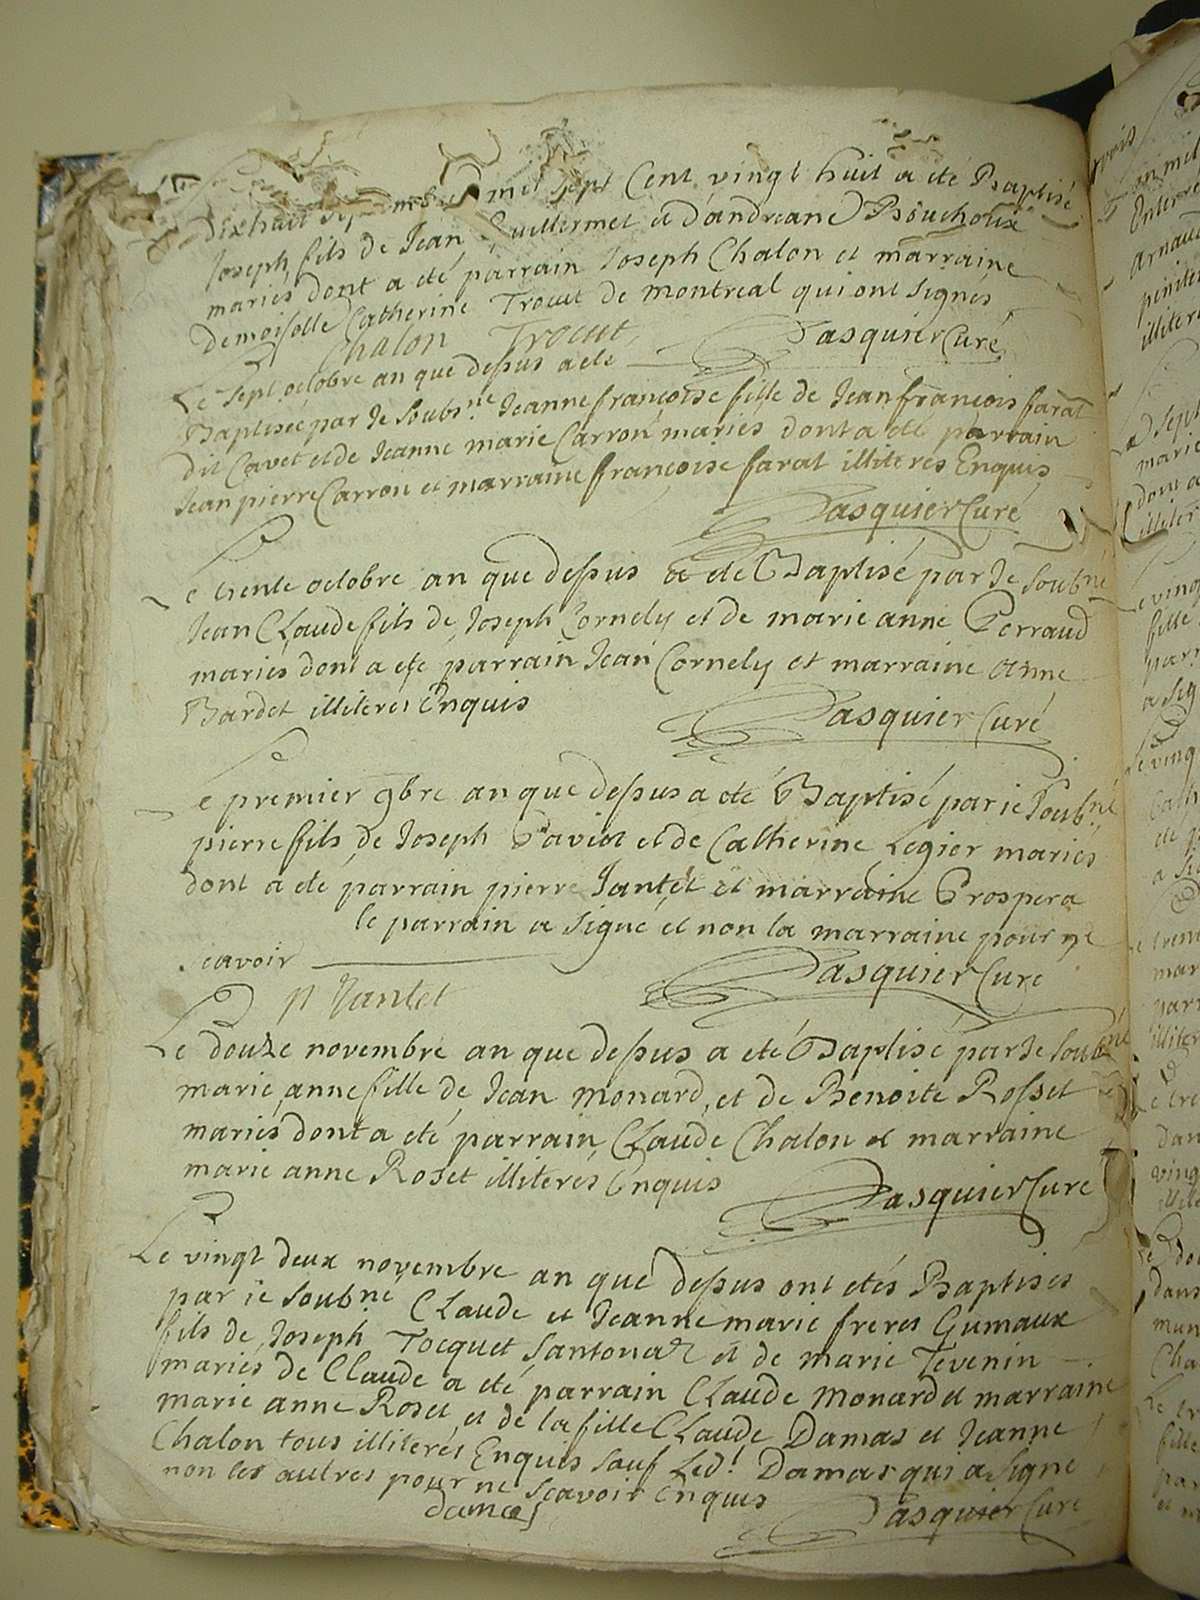 dixhuit septembre mil sept Cent vingt huit a eté Baptisé
Joseph fils de Jean Guillermet et d'andreane Bouchoux
mariés dont a eté parrain Joseph Chalon et marraine
demoiselle Catherine Trocut de montreal qui ont signés
Chalon Trocut Pasquier Curé
Le sept octobre an que dessus a ete
Baptisée par Je soubs.ne Jeanne françoise fille de Jean françois farat
dit Cavet et de Jeanne marie Carron mariés dont a eté parrain
Jean pierre Carron et marraine françoise farat illiteres Enquis
Pasquier Curé
Le trente octobre an que dessus a ete Baptisé par Je Soubné
Jean Claude fils de Joseph Cornely et de marie anne Perraud
mariés dont a eté parrain Jean Cornely et marraine Anne
Bardet illiteres Enquis Pasquier Curé
Le premier 9bre an que dessus a eté Baptisé par ie Soub.né
pierre fils de Joseph Paviot et de Catherine Legier mariés
dont a ete parrain pierre Jantet et marraine Prospera
le parrain a signé et non la marraine pour ne
scavoir Pasquier Curé
p Jantet
Le douze novembre an que dessus a eté Baptisé par Je Soubné
marie anne fille de Jean monard, et de Benoite Rosset
mariés dont a eté parrain Claude Chalon et marraine
marie anne Roset illiteres Enquis Pasquier Curé
Le vingt deux novembre an que dessus ont etés Baptisés
par ie soubné Claude et Jeanne marie freres Gumaux
fils de Joseph Tocquet Santonax et de marie Tevenin
mariés de Claude a eté parrain Claude monard et marraine
marie anne Roset et de la fille Claude Damas et Jeanne
Chalon tous illiterés Enquis sauf Led.t Damas qui a signe
non les autres pour ne scavoir Enquis
damas Pasquier Curé